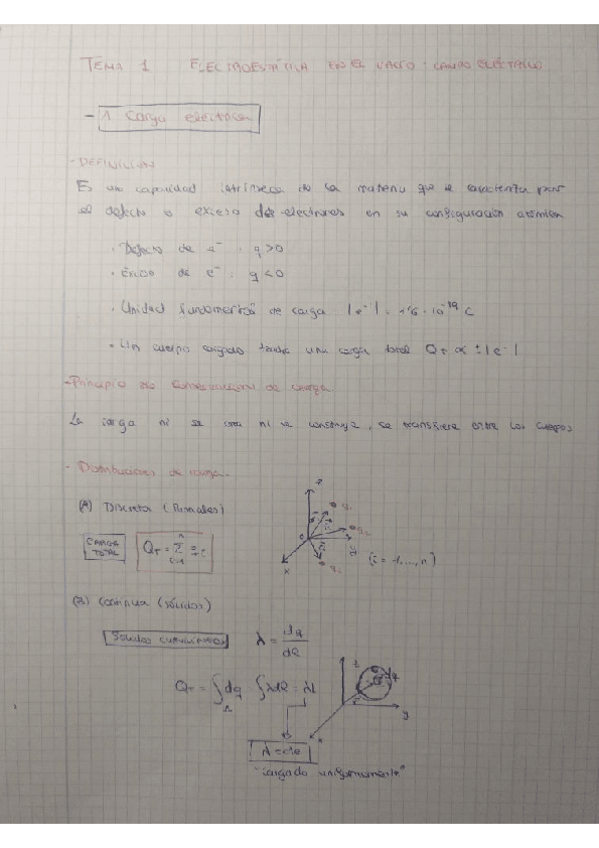 TEMA 1 ELECTROESTÁTICA EN EL VACÍO: CAMPO ELÉCTRICO
- 1. Carga eléctrica
- DEFINICIÓN
Es una capacidad intrínseca de la materia que se caracteriza por
el defecto o exceso de electrones en su configuración atómica
· Defecto de e⁻ : q > 0
· Exceso de e⁻ : q < 0
· Unidad fundamental de carga |e⁻| = 1'6 · 10⁻¹⁹ C
· Un cuerpo cargado tendrá una carga total Q_T ∝ ± |e⁻|
- Principio de conservación de carga
La carga ni se crea ni se construye, se transfiere entre los cuerpos
- Distribuciones de carga.
(A) Discreta (Puntuales)
CARGA TOTAL
Q_T = Σ q_i
(i = 1, ..., n)
x
(B) Continua (sólidos)
λ = dq/dl
Q_T = ∫ dq ∫ λdl = λl
z
y
x
λ = cte
"cargado uniformemente"